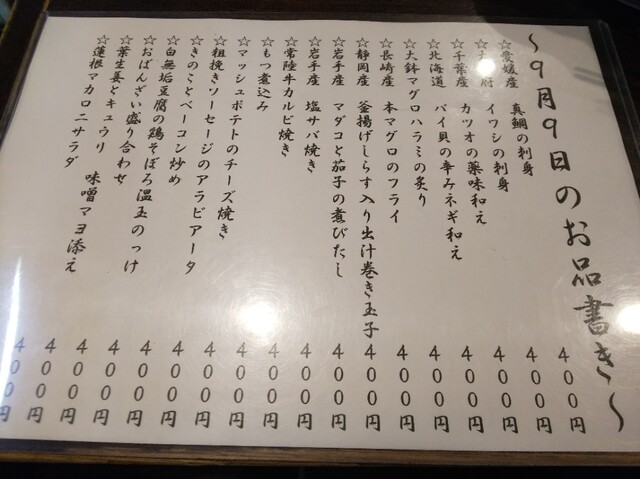 ～9月9日のお品書き～
☆愛媛産 真鯛の刺身 400円
府 イワシの刺身 400円
☆千葉産 カツオの薬味和え 400円
☆北海道 バイ貝の辛みネギ和え 400円
☆大鉢マグロハラミの炙り 400円
☆長崎産 本マグロのフライ 400円
☆静岡産 釜揚げしらす入り出汁巻き玉子 400円
☆岩手産 マダコと茄子の煮びたし 400円
☆岩手産 塩サバ焼き 400円
☆常陸牛カルビ焼き 400円
☆もつ煮込み 400円
☆マッシュポテトのチーズ焼き 400円
☆粗挽きソーセージのアラビアータ 400円
☆きのことベーコン炒め 400円
☆白無垢豆腐の鶏そぼろ温玉のっけ 400円
☆おばんざい盛り合わせ 400円
☆葉生姜とキュウリ 味噌マヨ添え 400円
☆蓮根マカロニサラダ 400円